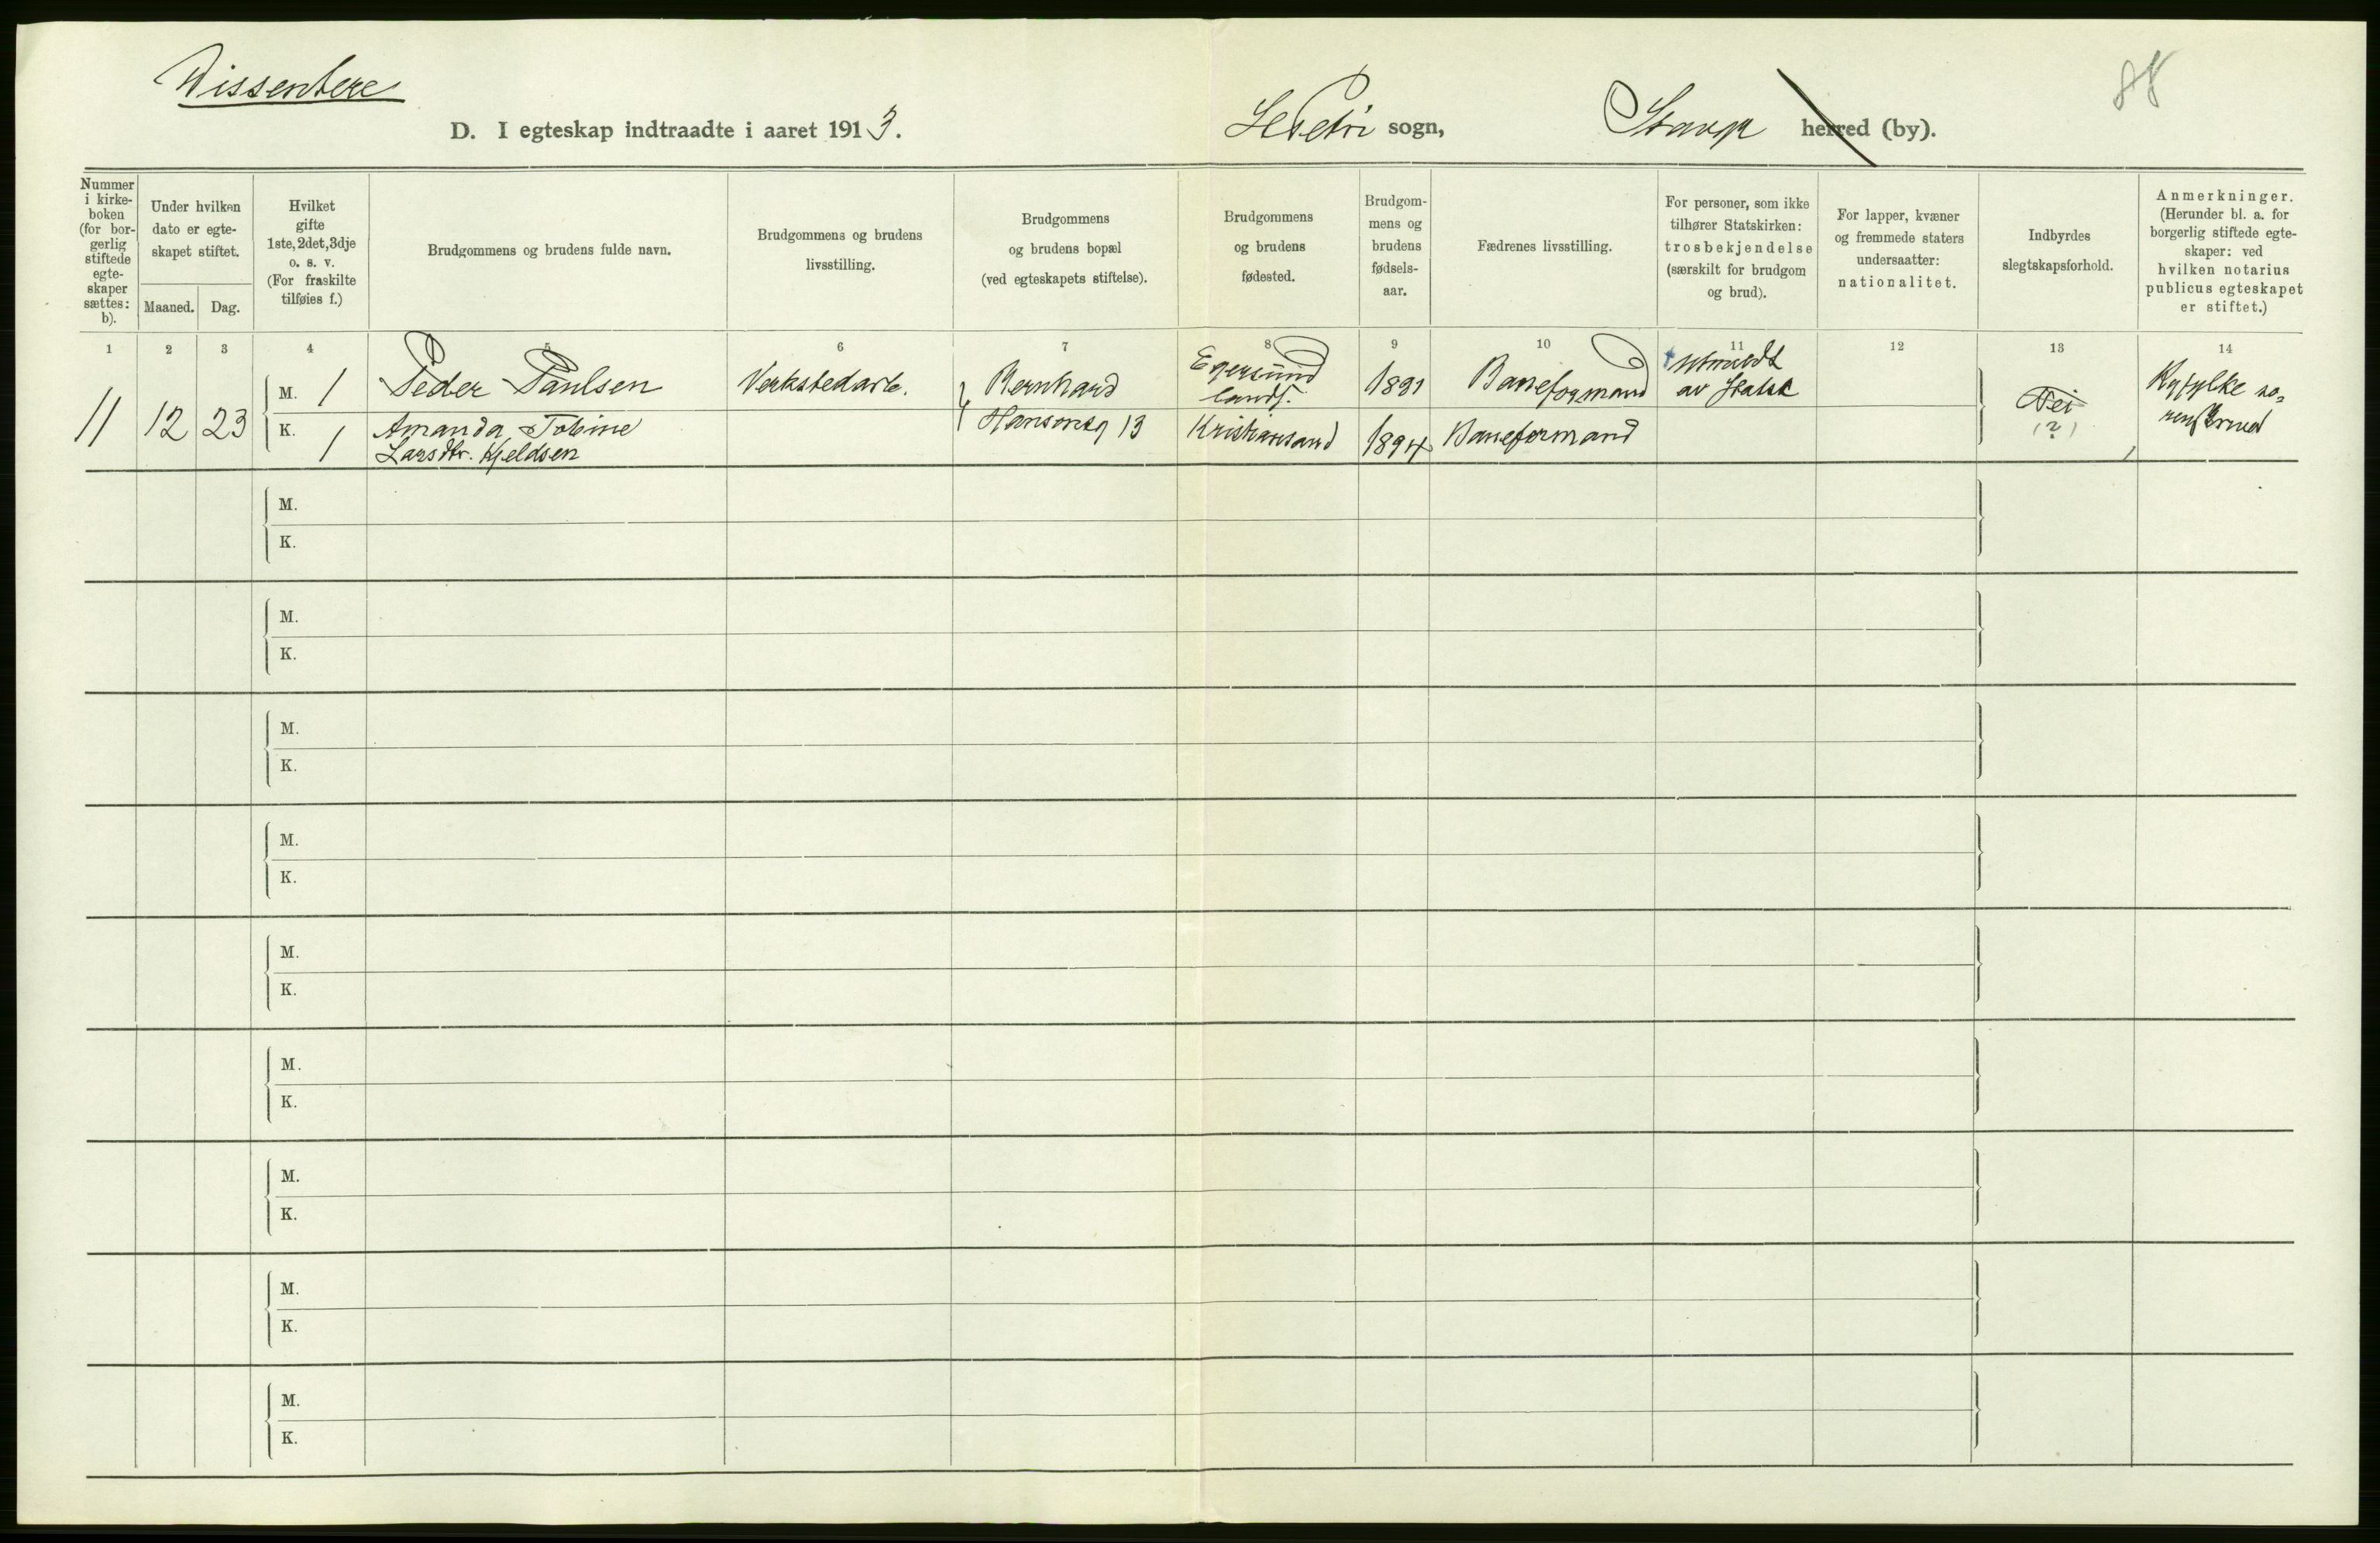 Dissentere
88
D. I egteskap indtraadte i aaret 1913.
St. Petri sogn, Stavgr herred (by).
Nummer i kirke-boken (for bor-gerlig stiftede egte-skaper sættes: b).
Under hvilken dato er egte-skapet stiftet.
Maaned. Dag.
Hvilket gifte 1ste, 2det, 3dje o. s. v. (For fraskilte tilføies f.)
Brudgommens og brudens fulde navn.
Brudgommens og brudens livsstilling.
Brudgommens og brudens bopæl (ved egteskapets stiftelse).
Brudgommens og brudens fødested.
Brudgom-mens og brudens fødsels-aar.
Fædrenes livsstilling.
For personer, som ikke tilhører Statskirken: trosbekjendelse (særskilt for brudgom og brud).
For lapper, kvæner og fremmede staters undersaatter: nationalitet.
Indbyrdes slegtskapsforhold.
Anmerkninger. (Herunder bl. a. for borgerlig stiftede egte-skaper: ved hvilken notarius publicus egteskapet er stiftet.)
1 2 3 4 5 6 7 8 9 10 11 12 13 14
11 12 23
M. 1 Peder Paulsen Verkstedarb. Bernhard Egersund lands. 1891 Baneformand utmeldt av Statsk Nei (?) Ryfylke so=
K. 1 Amanda Tobine Larsdtr. Kjeldsen Hansensg 13 Kristiansand 1894 Baneformand
M.
K.
M.
K.
M.
K.
M.
K.
M.
K.
M.
K.
M.
K.
M.
K.
M.
K.